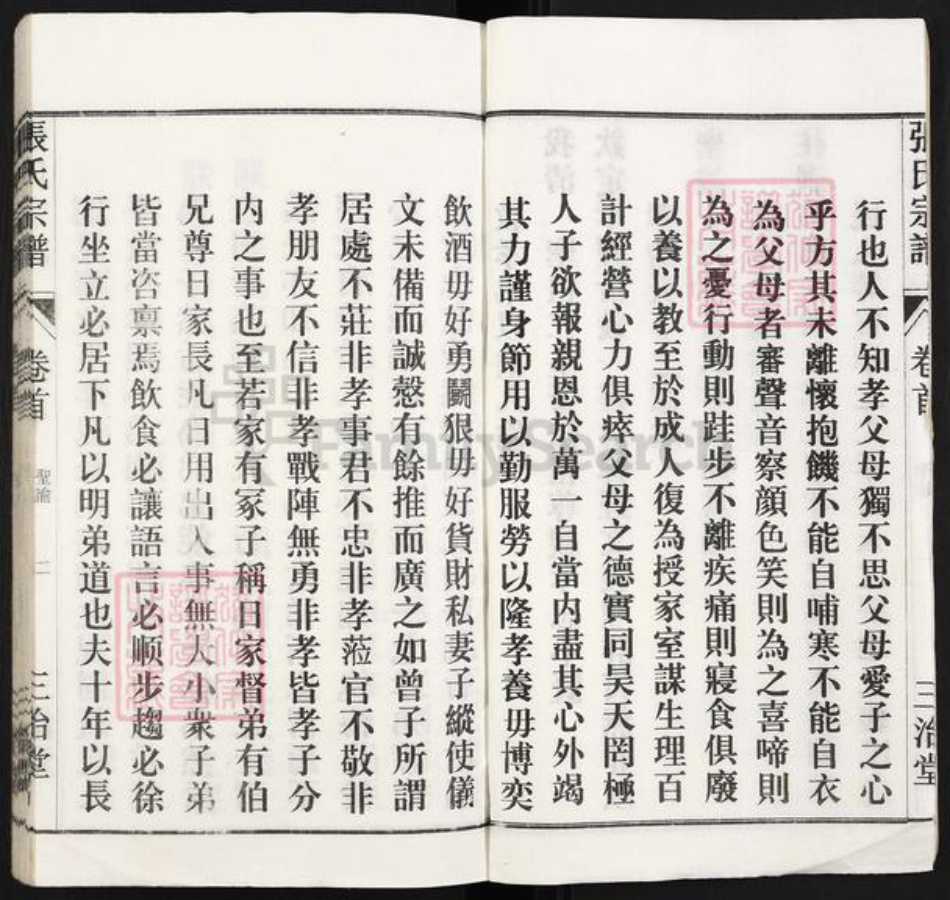 行也人不知孝父母獨不思父母愛子之心
乎方其未離懷抱饑不能自哺寒不能自衣
為父母者審聲音察顔色笑則為之喜啼則
為之憂行動則跬步不離疾痛則寢食俱廢
以養以教至於成人復為授家室謀生理百
計經營心力俱瘁父母之德實同昊天罔極
人子欲報親恩於萬一自當内盡其心外竭
其力謹身節用以勤服勞以隆孝養毋博奕
飲酒毋好勇鬭狠毋好貨財私妻子縱使儀
文未備而誠慤有餘推而廣之如曾子所謂
居處不莊非孝事君不忠非孝蒞官不敬非
孝朋友不信非孝戰陣無勇非孝皆孝子分
内之事也至若家有冢子稱曰家督弟有伯
兄尊曰家長凡日用出入事無大小衆子弟
皆當咨禀焉飲食必讓語言必順步趨必徐
行坐立必居下凡以明弟道也夫十年以長
張氏宗譜
卷首
聖諭
二
三治堂
張氏宗譜
卷首
三治堂
FamilySearch